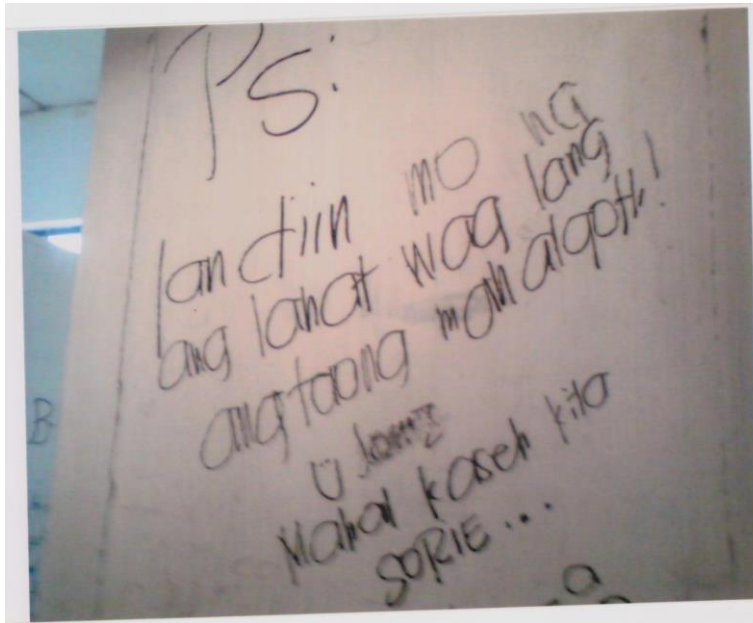 PS:
landiin mo na
ang lahat wag lang
ang taong mahal qoh!
Ü
Mahal kaseh kita
SORIE...